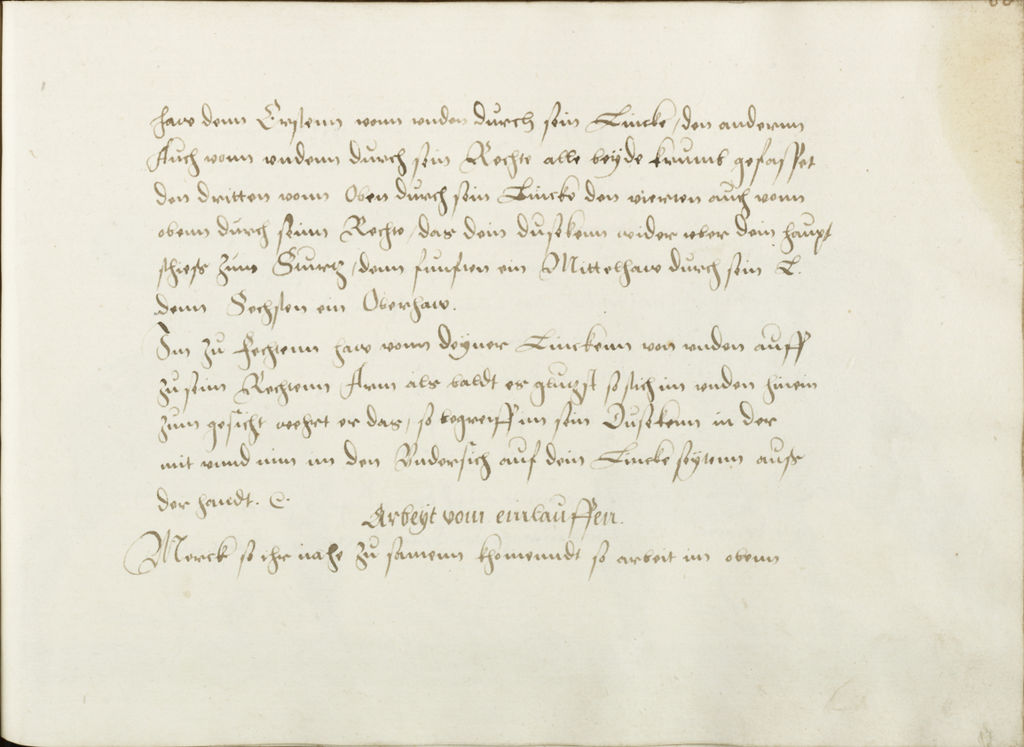 haw denn Erstenn vonn vnden durch sein Lincke / den andernn
Auch vonn vndenn durch sein Rechte alle beyde krumb gefasset
den dritten vonn Oben durch sein Lincke den vierten auch vonn
obenn durch seinn Rechte / das dein dusekenn wider vber dein haupt
schiess zum Sturtz / denn funften ein Mittelhaw durch sein L.
denn Sechsten ein Oberhaw.
Im zu fechtenn haw vonn deyner Linckenn von vnden auff
zu seim Rechtenn Arm als baldt er glutzst so stich im vnden hinein
zum gesicht wehrt er das, so begreiff im sein Dusekenn in der
mit vnnd nim im den Vndersich auf dein Lincke seytenn auss
der handt. &.
Arbeyt vom einlauffen.
Merck so ihr nahe zu samenn khomenndt so arbeit im obenn